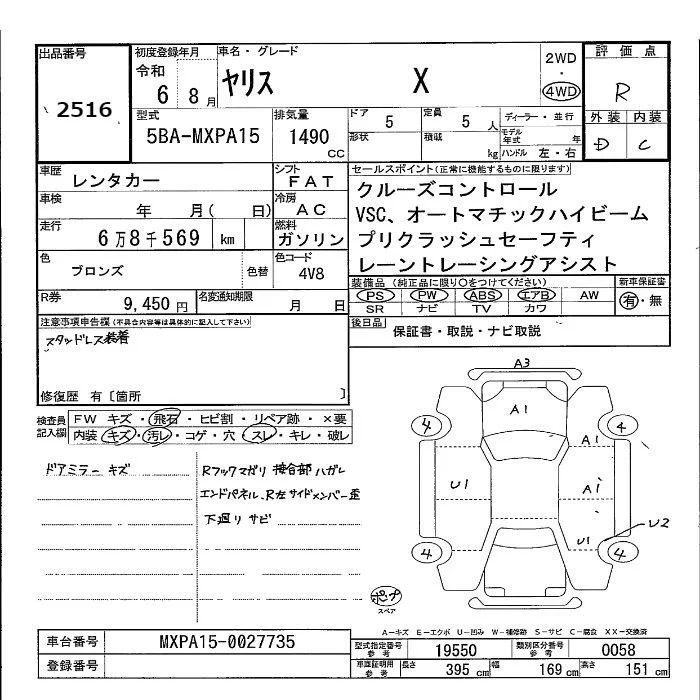 出品番号
2516
初度登録年月
令和
6 8月
車名・グレード
ヤリス X
2WD
・
4WD
評価点
R
外装 内装
D C
型式
5BA-MXPA15
排気量
1490
CC
ドア
5
定員
5 人
形状
積載
kg
ディーラー・並行
モデル年式 年
ハンドル 左・右
車歴
レンタカー
シフト
FAT
車検
年 月( 日)
冷房
AC
走行
6万8千569 km
燃料
ガソリン
色
ブロンズ
色替
色コード
4V8
R券
9,450 円
名変通知期限
月 日
セールスポイント(正常に機能するものに限ります)
クルーズコントロール
VSC、オートマチックハイビーム
プリクラッシュセーフティ
レーントレーシングアシスト
装備品 (純正品に限り○をつけてください)
PS PW ABS エアB AW
SR ナビ TV カワ
新車保証書
有・無
後日品
保証書・取説・ナビ取説
注意事項申告欄(不具合内容等は具体的に記入して下さい)
スタッドレス装着
修復歴 有[箇所 ]
検査員記入欄
FW キズ・飛石・ヒビ割・リペア跡・×要
内装 キズ・汚レ・コゲ・穴・スレ・キレ・破レ
ドアミラー キズ
Rフックマガリ 接合部ハガレ
エンドパネル、R左サイドメンバー歪
下廻り サビ
A3
A1
4
4
A1
U1
A1
U1
U2
4
4
スペア
A-キズ E-エクボ U-凹み W-補修跡 S-サビ C-腐食 XX-交換済
車台番号
MXPA15-0027735
登録番号
型式指定番号
参考
19550
類別区分番号
参考
0058
車庫証明用
参考
長さ
395 cm
幅
169 cm
高さ
151 cm